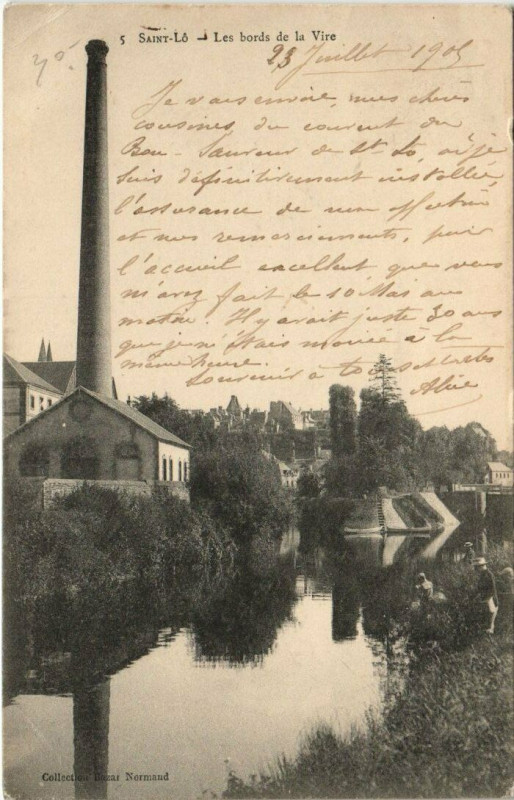 5 SAINT-LÔ — Les bords de la Vire
23 Juillet 1905
Je vous envoie, mes chères
cousines, du couvent du
Bon-Sauveur de St Lo, où je
suis définitivement installée,
l'assurance de mon
et mes remerciements, pour
l'accueil excellent que vous
m'avez fait le 10 Mai au
matin. Il y avait juste 30 ans
que je m'étais mariée à la
même heure.
Souvenir à toutes
Alice
Collection Bazar Normand